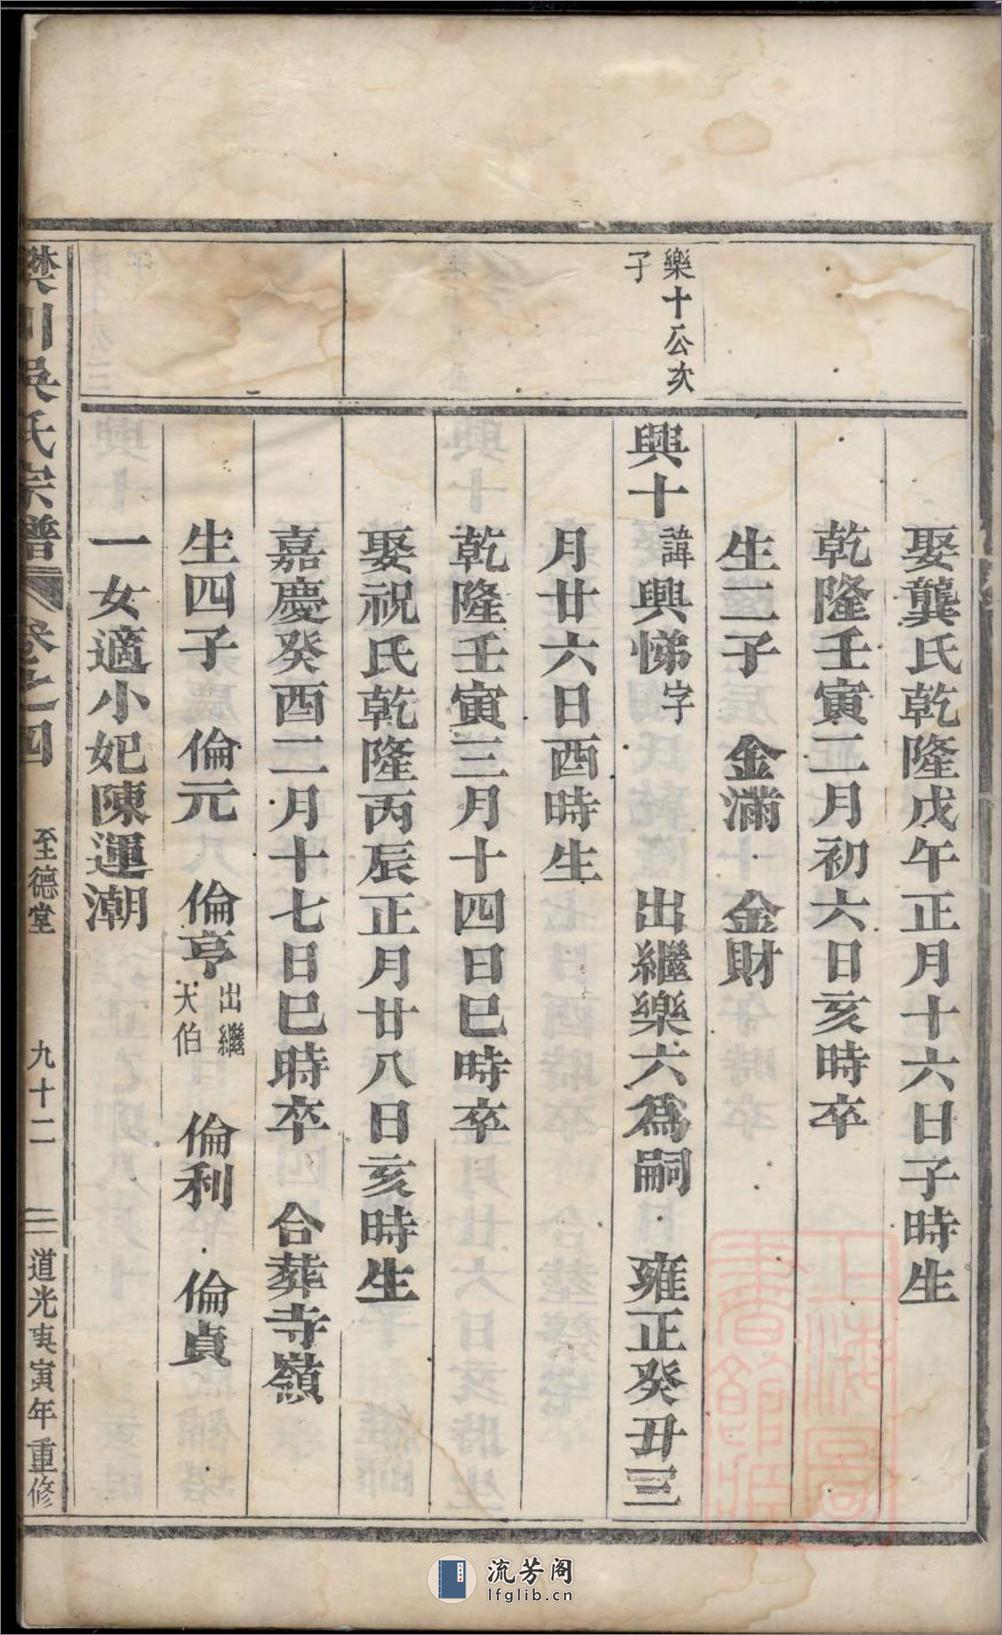 娶龔氏乾隆戊午正月十六日子時生
乾隆壬寅二月初六日亥時卒
生二子　金滿　金財
樂十公次
子
興十諱興悌字　出繼樂六為嗣　雍正癸丑三
月廿六日酉時生
乾隆壬寅三月十四日巳時卒
娶祝氏乾隆丙辰正月廿八日亥時生
嘉慶癸酉二月十七日巳時卒　合葬寺嶺
生四子　倫元　倫亨出繼天伯　倫利　倫貞
一女適小妃陳運潮
川吳氏宗譜　卷之四　至德堂　九十二　道光庚寅年重修
上海圖書館藏
流芳阁
lfglib.cn